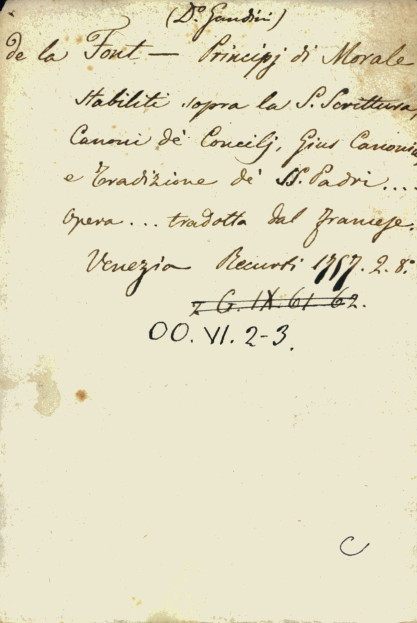 (Do. Gandini)
de la Font — Principj di Morale
stabiliti sopra la S. Scrittura,
Canoni de' Concilj, Gius Canonic
e Tradizione de' SS. Padri....
opera... tradotta dal francese.
Venezia Recurti 1757. 2. 8.o
z G. IX. 61 62.
OO. VI. 2-3.
C